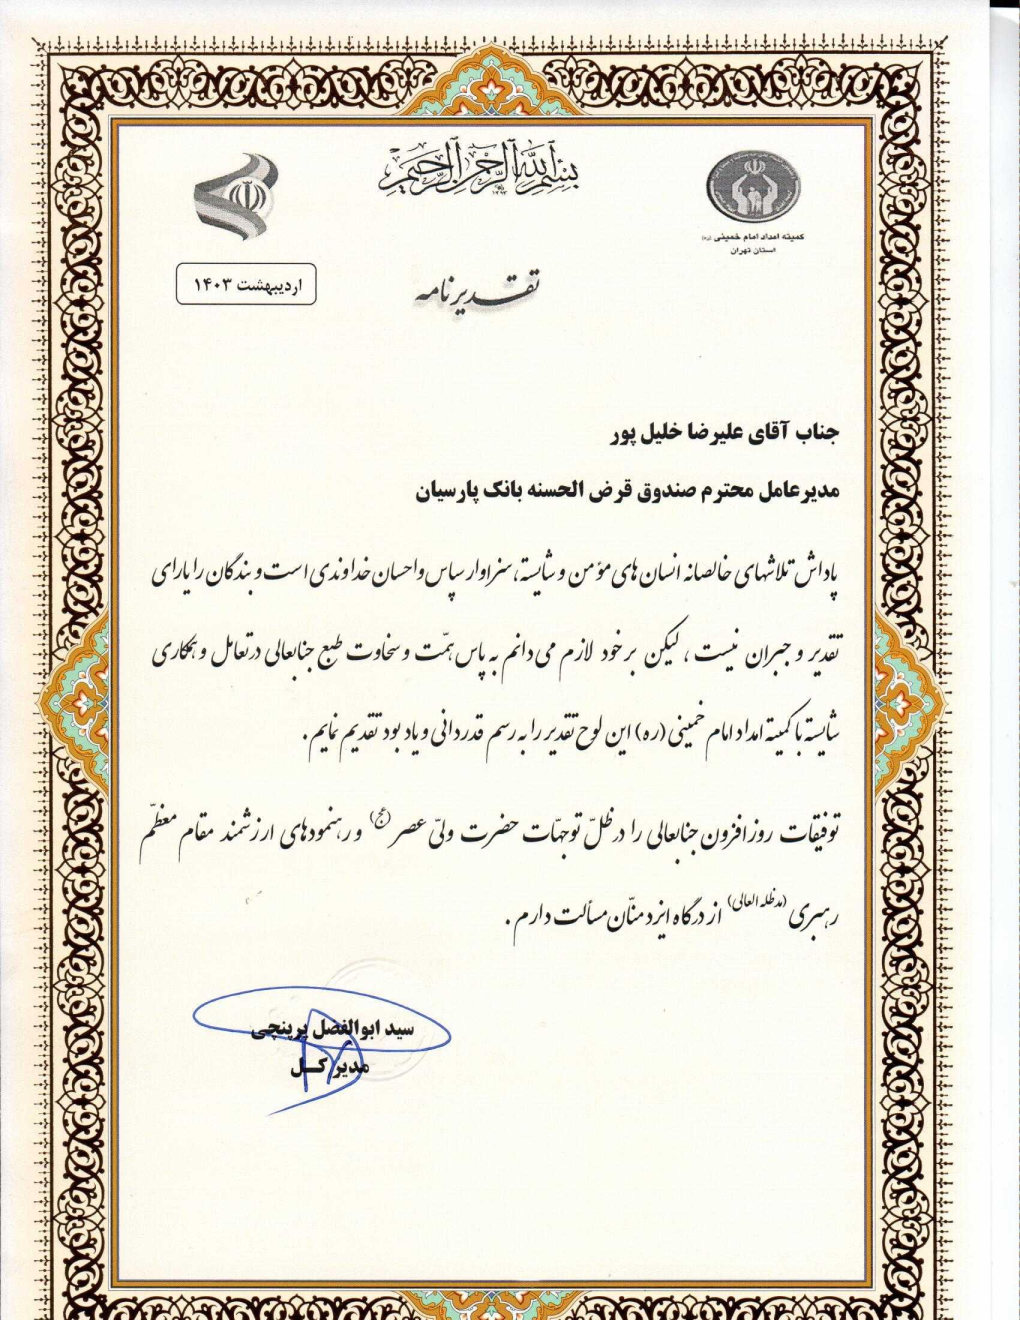 بسم الله الرحمن الرحیم
کمیته امداد امام خمینی (ره)
استان تهران
اردیبهشت ۱۴۰۳
تقدیرنامه
جناب آقای علیرضا خلیل پور
مدیرعامل محترم صندوق قرض الحسنه بانک پارسیان
پاداش تلاشهای خالصانه انسان های مؤمن و شایسته، سزاوار سپاس و احسان خداوندی است و بندگان را یارای
تقدیر و جبران نیست ، لیکن بر خود لازم می دانم به پاس همّت و سخاوت طبع جنابعالی در تعامل و همکاری
شایسته با کمیته امداد امام خمینی (ره) این لوح تقدیر را به رسم قدردانی و یاد بود تقدیم نمایم .
توفیقات روزافزون جنابعالی را در ظلّ توجهّات حضرت ولیّ عصر (عج) و رهنمودهای ارزشمند مقام معظّم
رهبری (مدظله العالی) از درگاه ایزد منّان مسألت دارم .
سید ابوالفضل پرپنچی
مدیر کـــل